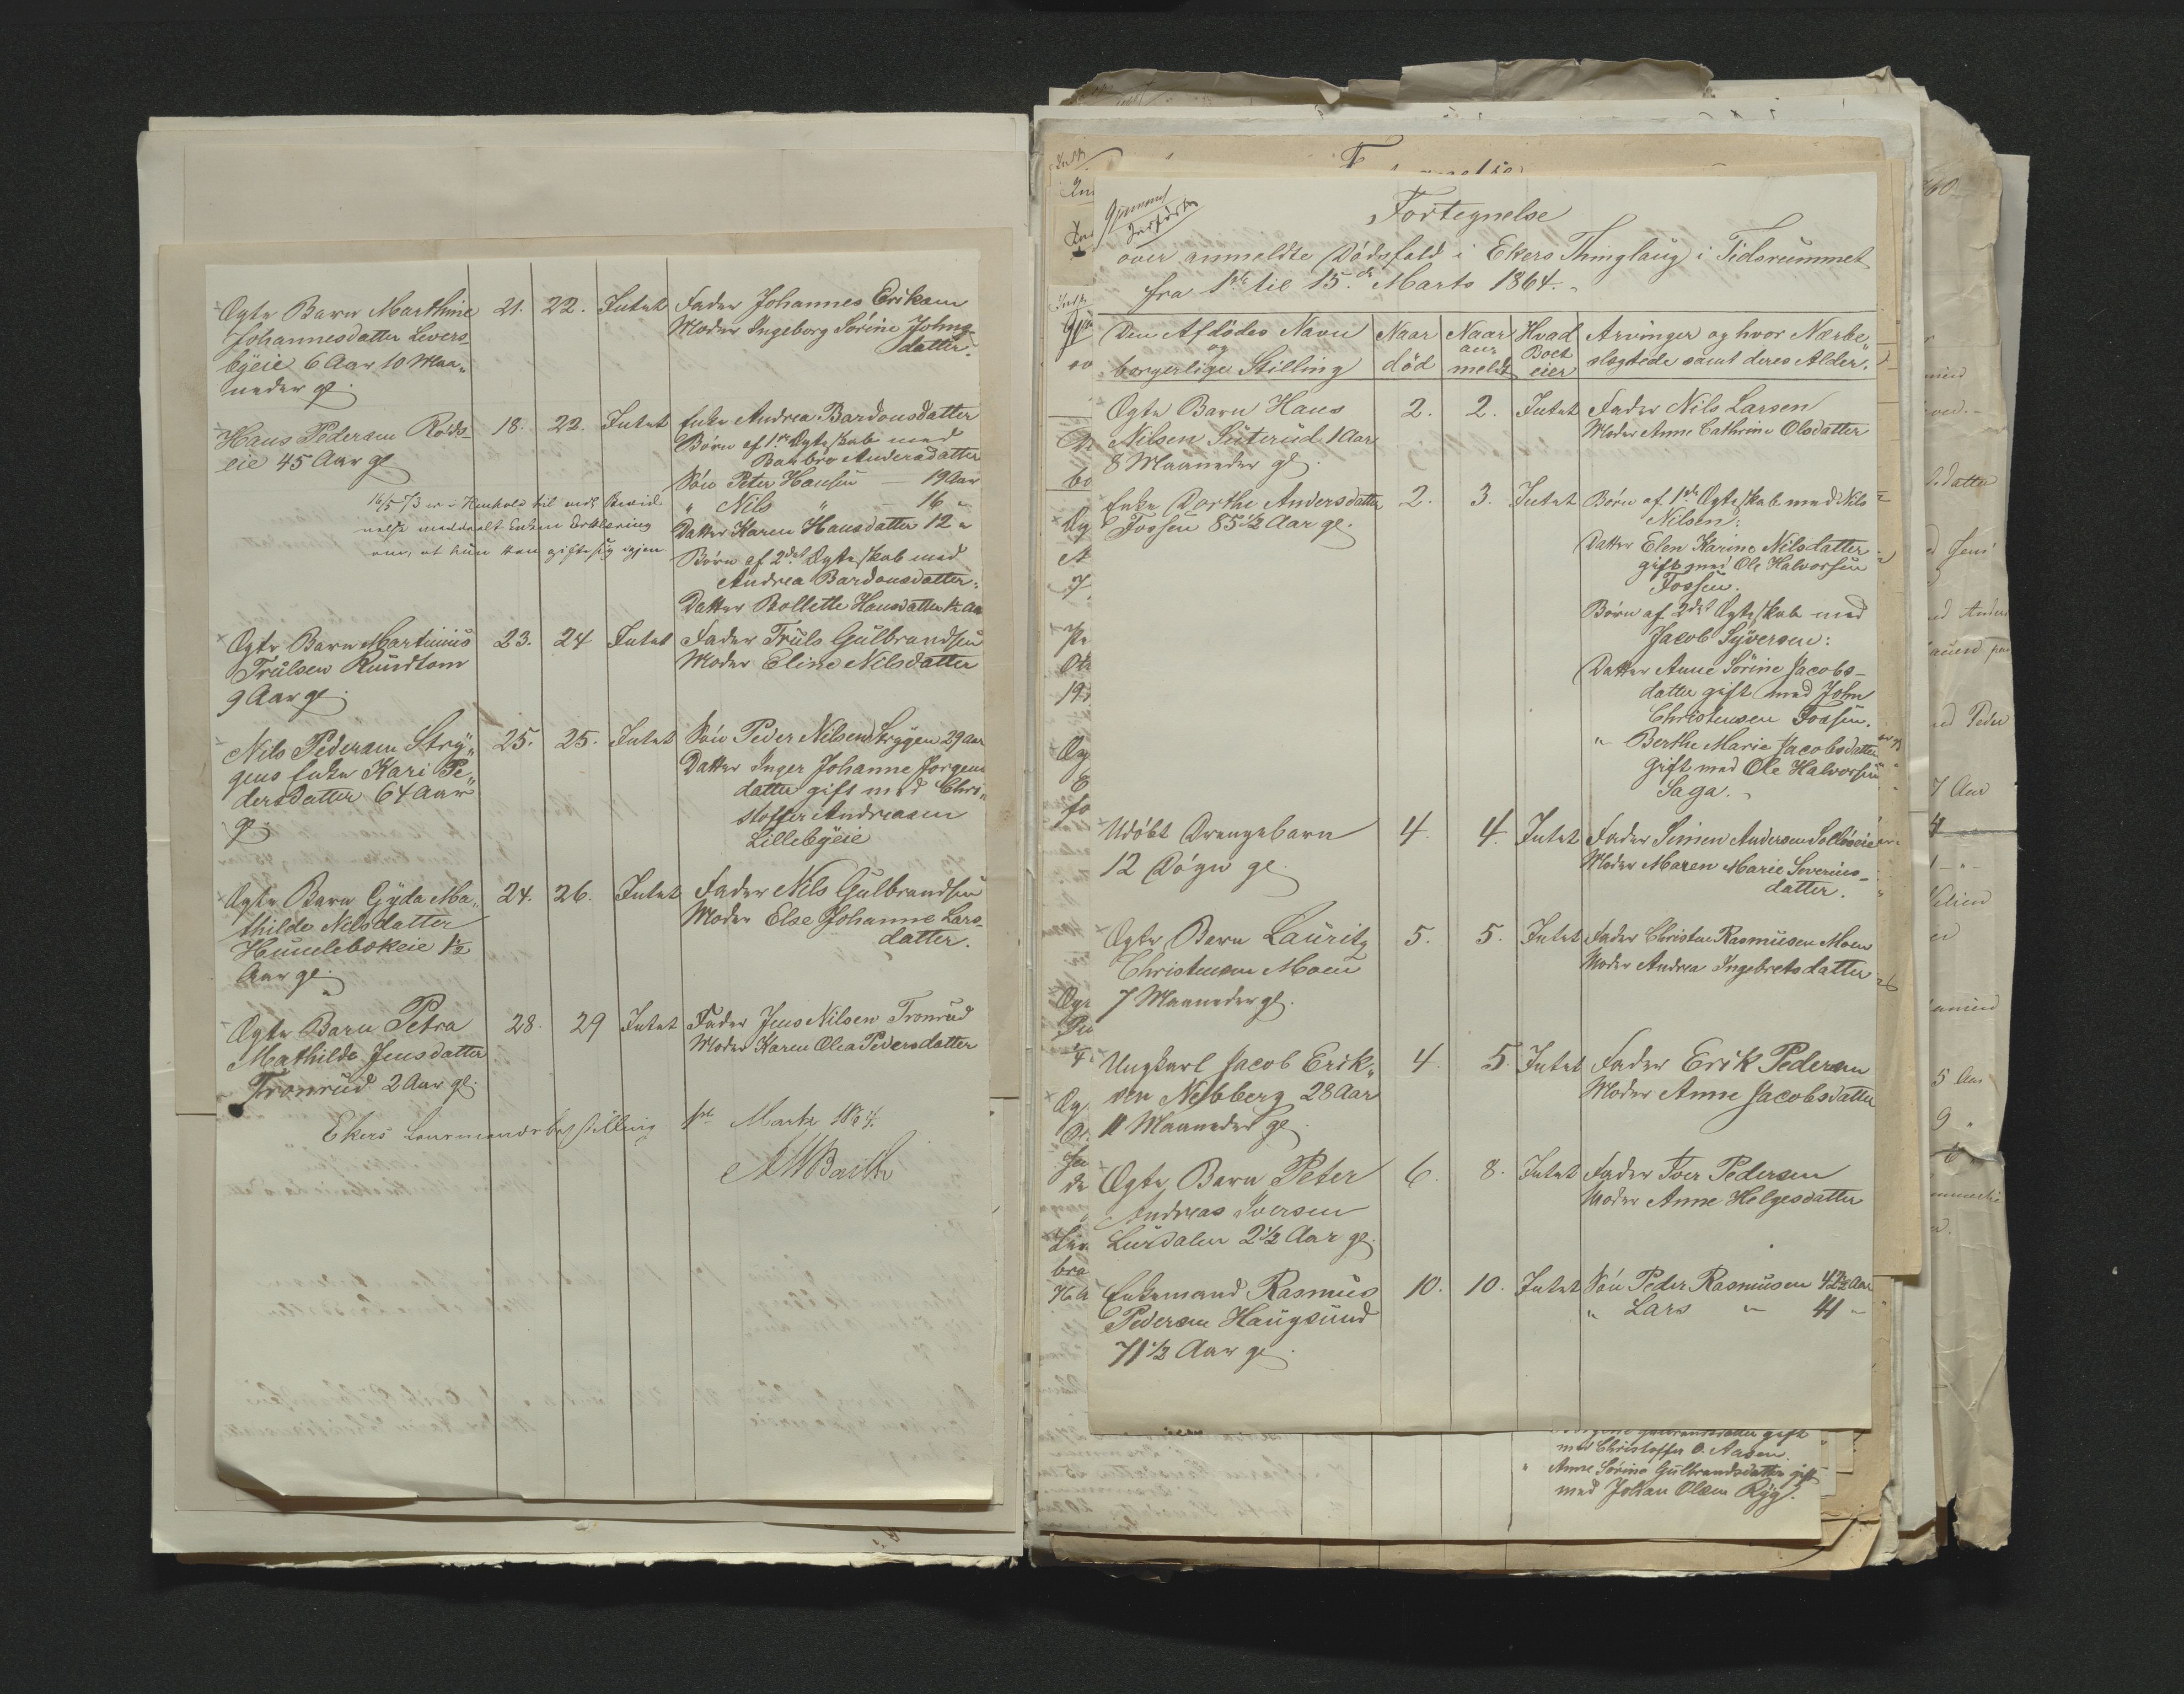 Ægte Barn Marthine 21. 22. Intet Fader Johannes Eriksen
Johannesdatter Levers- Moder Ingeborg Sørine Johns-
byeie 6 Aar 10 Maa- datter.
neder gl.
Hans Pedersen Røds- 18. 22. Intet Enke Andrea Bardousdatter
eie 45 Aar gl Børn af 1ste Ægteskab med
Barbro Andersdatter
Søn Peter Hansen — 19 Aar
16/5 73 er i Henhold til Enken Erklæring
" Nils " — 16 "
Datter Karen Hansdatter 12 "
om, at hun kan gifte sig igjen
Børn af 2det Ægteskab med
Andrea Bardousdatter:
Datter Bollette Hansdatter ½ Aar
Ægte Barn Martinius 23. 24 Intet Fader Truls Gulbrandsen
Trulsen Rundtom Moder Eline Nilsdatter
9 Aar gl.
Nils Pedersen Stry- 25. 25. Intet Søn Peder Nilsen Strygen 29 Aar
gens Enke Kari Pe- Datter Inger Johanne Jorgens
dersdatter 64 Aar datter gift med Chri-
gl stoffer Andreasen
Lillebyeie
Ægte Barn Gyda Ma- 24. 26. Intet Fader Nils Gulbrandsen
thilde Nilsdatter Moder Else Johanne Lars-
Humlebækeie 1½ datter.
Aar gl.
Ægte Barn Petra 28. 29 Intet Fader Jens Nilsen Tronrud
Mathilde Jensdatter Moder Karen Olea Pedersdatter
Tronrud 2 Aar gl.
Ekers Lensmandsbestilling 1ste Marts 1864.
Fortegnelse
over anmeldte Dødsfald i Ekers Thinglaug i Tidsrummet
fra 1ste til 15de Marts 1864.
Den Afdødes Navn Naar Naar Hvad Arvinger og hvor Nærbe-
og an- Boet
borgerlige Stilling død meldt eier slægtede samt deres Alder.
Ægte Barn Hans 2. 2. Intet Fader Nils Larsen
Nilsen Suterud 1 Aar Moder Anne Cathrine Olsdatter
8 Maaneder gl.
Enke Dorthe Andersdatter 2. 3. Intet Børn af 1ste Ægteskab med Nils
Fossen 85½ Aar gl. Nilsen:
Datter Elen Karine Nilsdatter
gift med Ole Halvorsen
Fossen.
Børn af 2det Ægteskab med
Jacob Syversen:
Datter Anne Sørine Jacobs-
datter gift med John
Christensen Fossen.
" Berthe Marie Jacobsdatter
gift med Ole Halvorsen
Saga.
Udøbt Drengebarn 4. 4. Intet Fader Simen Andersen
12 Døgn gl. Moder Maren Marie Severins-
datter.
Ægte Barn Lauritz 5. 5. Intet Fader Christen Rasmusen Moen
Christensen Moen Moder Andrea Ingebretsdatter
7 Maaneder gl.
Ungkarl Jacob Erik- 4. 5. Intet Fader Erik Pedersen
sen Nebberg 28 Aar Moder Anne Jacobsdatter
11 Maaneder gl.
Ægte Barn Peter 6. 8. Intet Fader Iver Pedersen
Andreas Iversen Moder Anne Helgesdatter
Lurdalen 2½ Aar gl.
Enkemand Rasmus 10. 10. Intet Søn Peder Rasmusen 42½ Aar
Pedersen Haugsund " Lars " 41 "
71½ Aar gl.
med Christoffer O. Aasen.
" Anne Sørine Gulbrandsdatter gift
med Johan Olsen Ryg.